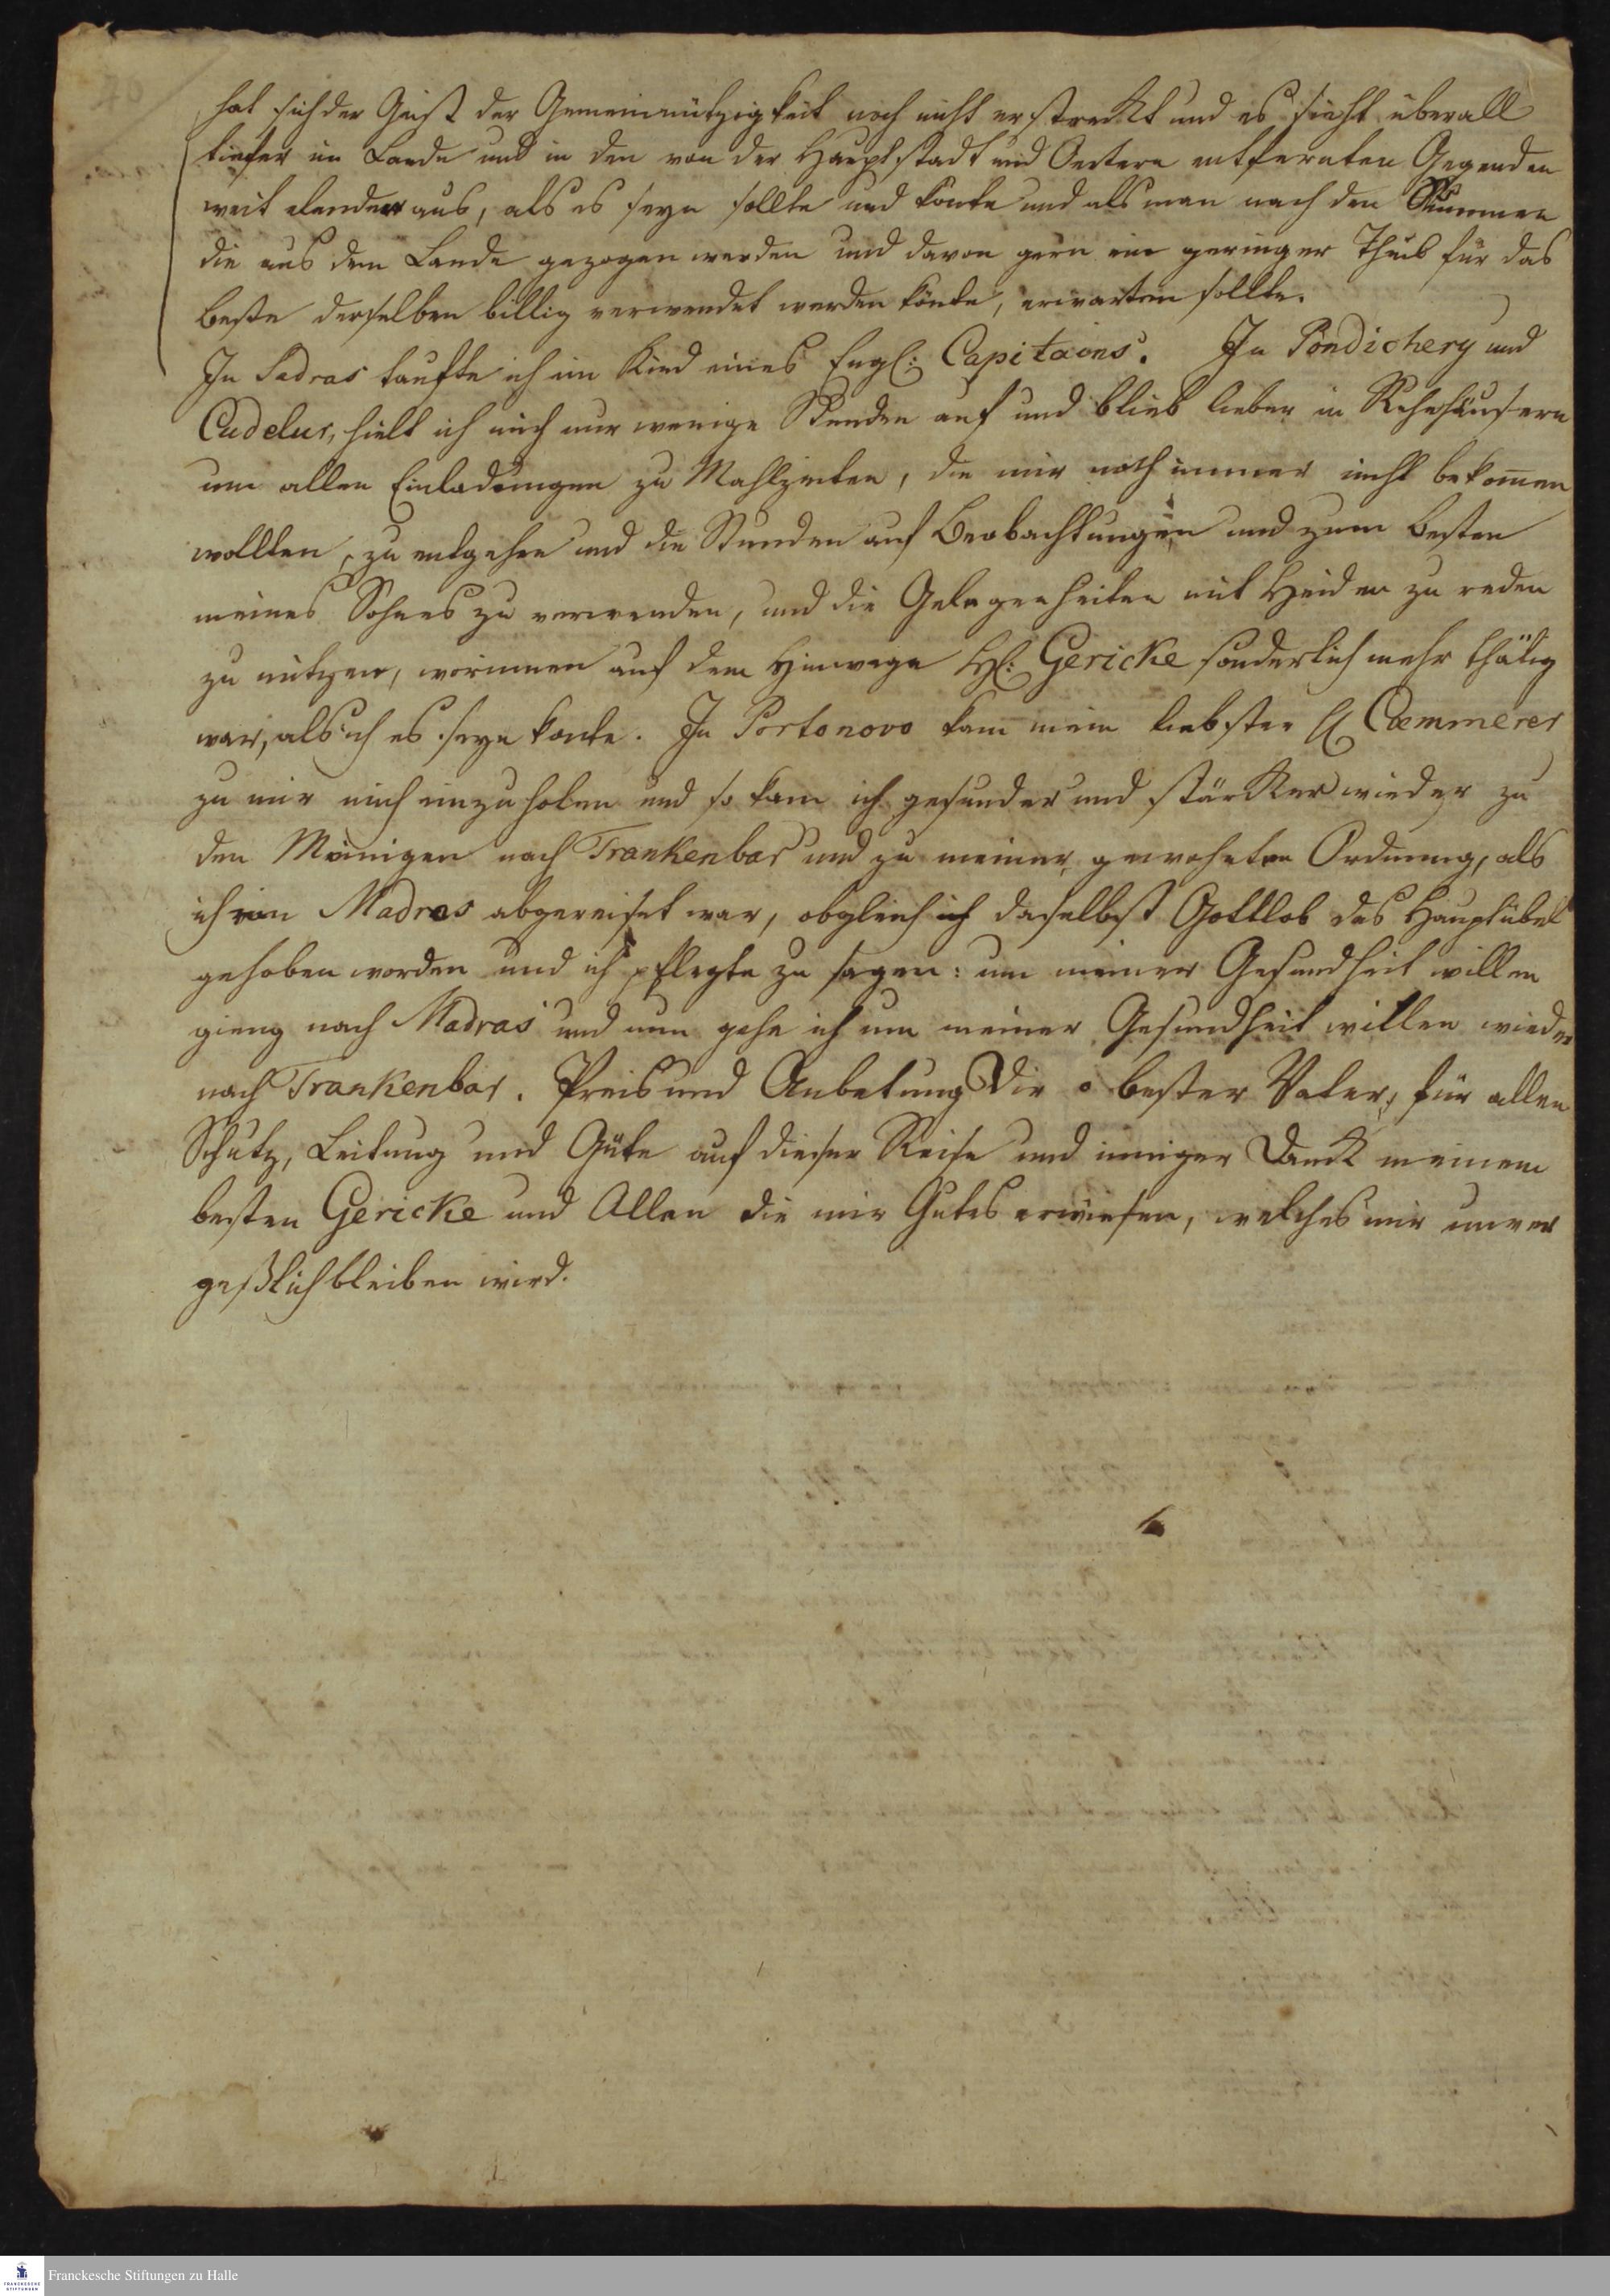 hat sich der Geist der Gemeinnützigkeit noch nicht erstreckt und es sieht überall
tiefer im Lande und in den von der Hauptstadt und Oertern entfernten Gegenden
weit elender aus, als es seyn sollte und konte und als man nach den Summen
die aus dem Lande gezogen werden und davon gern ein geringer Theil für das
beste derselben billig verwendet werden könte, erwarten sollte.
In Sadras taufte ich ein Kind eines Engl: Capitains. In Pondichery und
Cudelur, hielt ich mich nur wenige Stunden auf und blieb lieber in Ruhehäusern
um allen Einladungen zu Mahlzeiten, die mir noch immer nicht bekomen
wollten, zu entgehen und die Stunden auf Beobachtungen und zum besten
meines Sohnes zu verwenden, und die Gelegenheiten mit Heiden zu reden
zu nutzen, worinnen auf dem Hinwege H: Gericke sonderlich mehr thätig
war, als ich es seyn konte. In Portonovo kam mein liebster H Cæmmerer
zu mir mich einzuholen und so kam ich gesunder und stärcker wieder zu
den Meinigen nach Trankenbar und zu meiner gewohnten Ordnung, als
ich von Madras abgereiset war, obgleich daselbst Gottlob das Hauptübel
gehoben worden und ich pflegte zu sagen: um meiner Gesundheit willen
gieng nach Madras und nun gehe ich um meiner Gesundheit willen wieder
nach Trankenbar. Preis und Anbetung Dir o bester Vater, für allen
Schutz, Leitung und Güte auf dieser Reise und inniger Danck meinem
besten Gericke und Allen die mir Gutes erwiesen, welches mir unver
geßlich bleiben wird.
Franckesche Stiftungen zu Halle
FRANCKESCHE
STIFTUNGEN